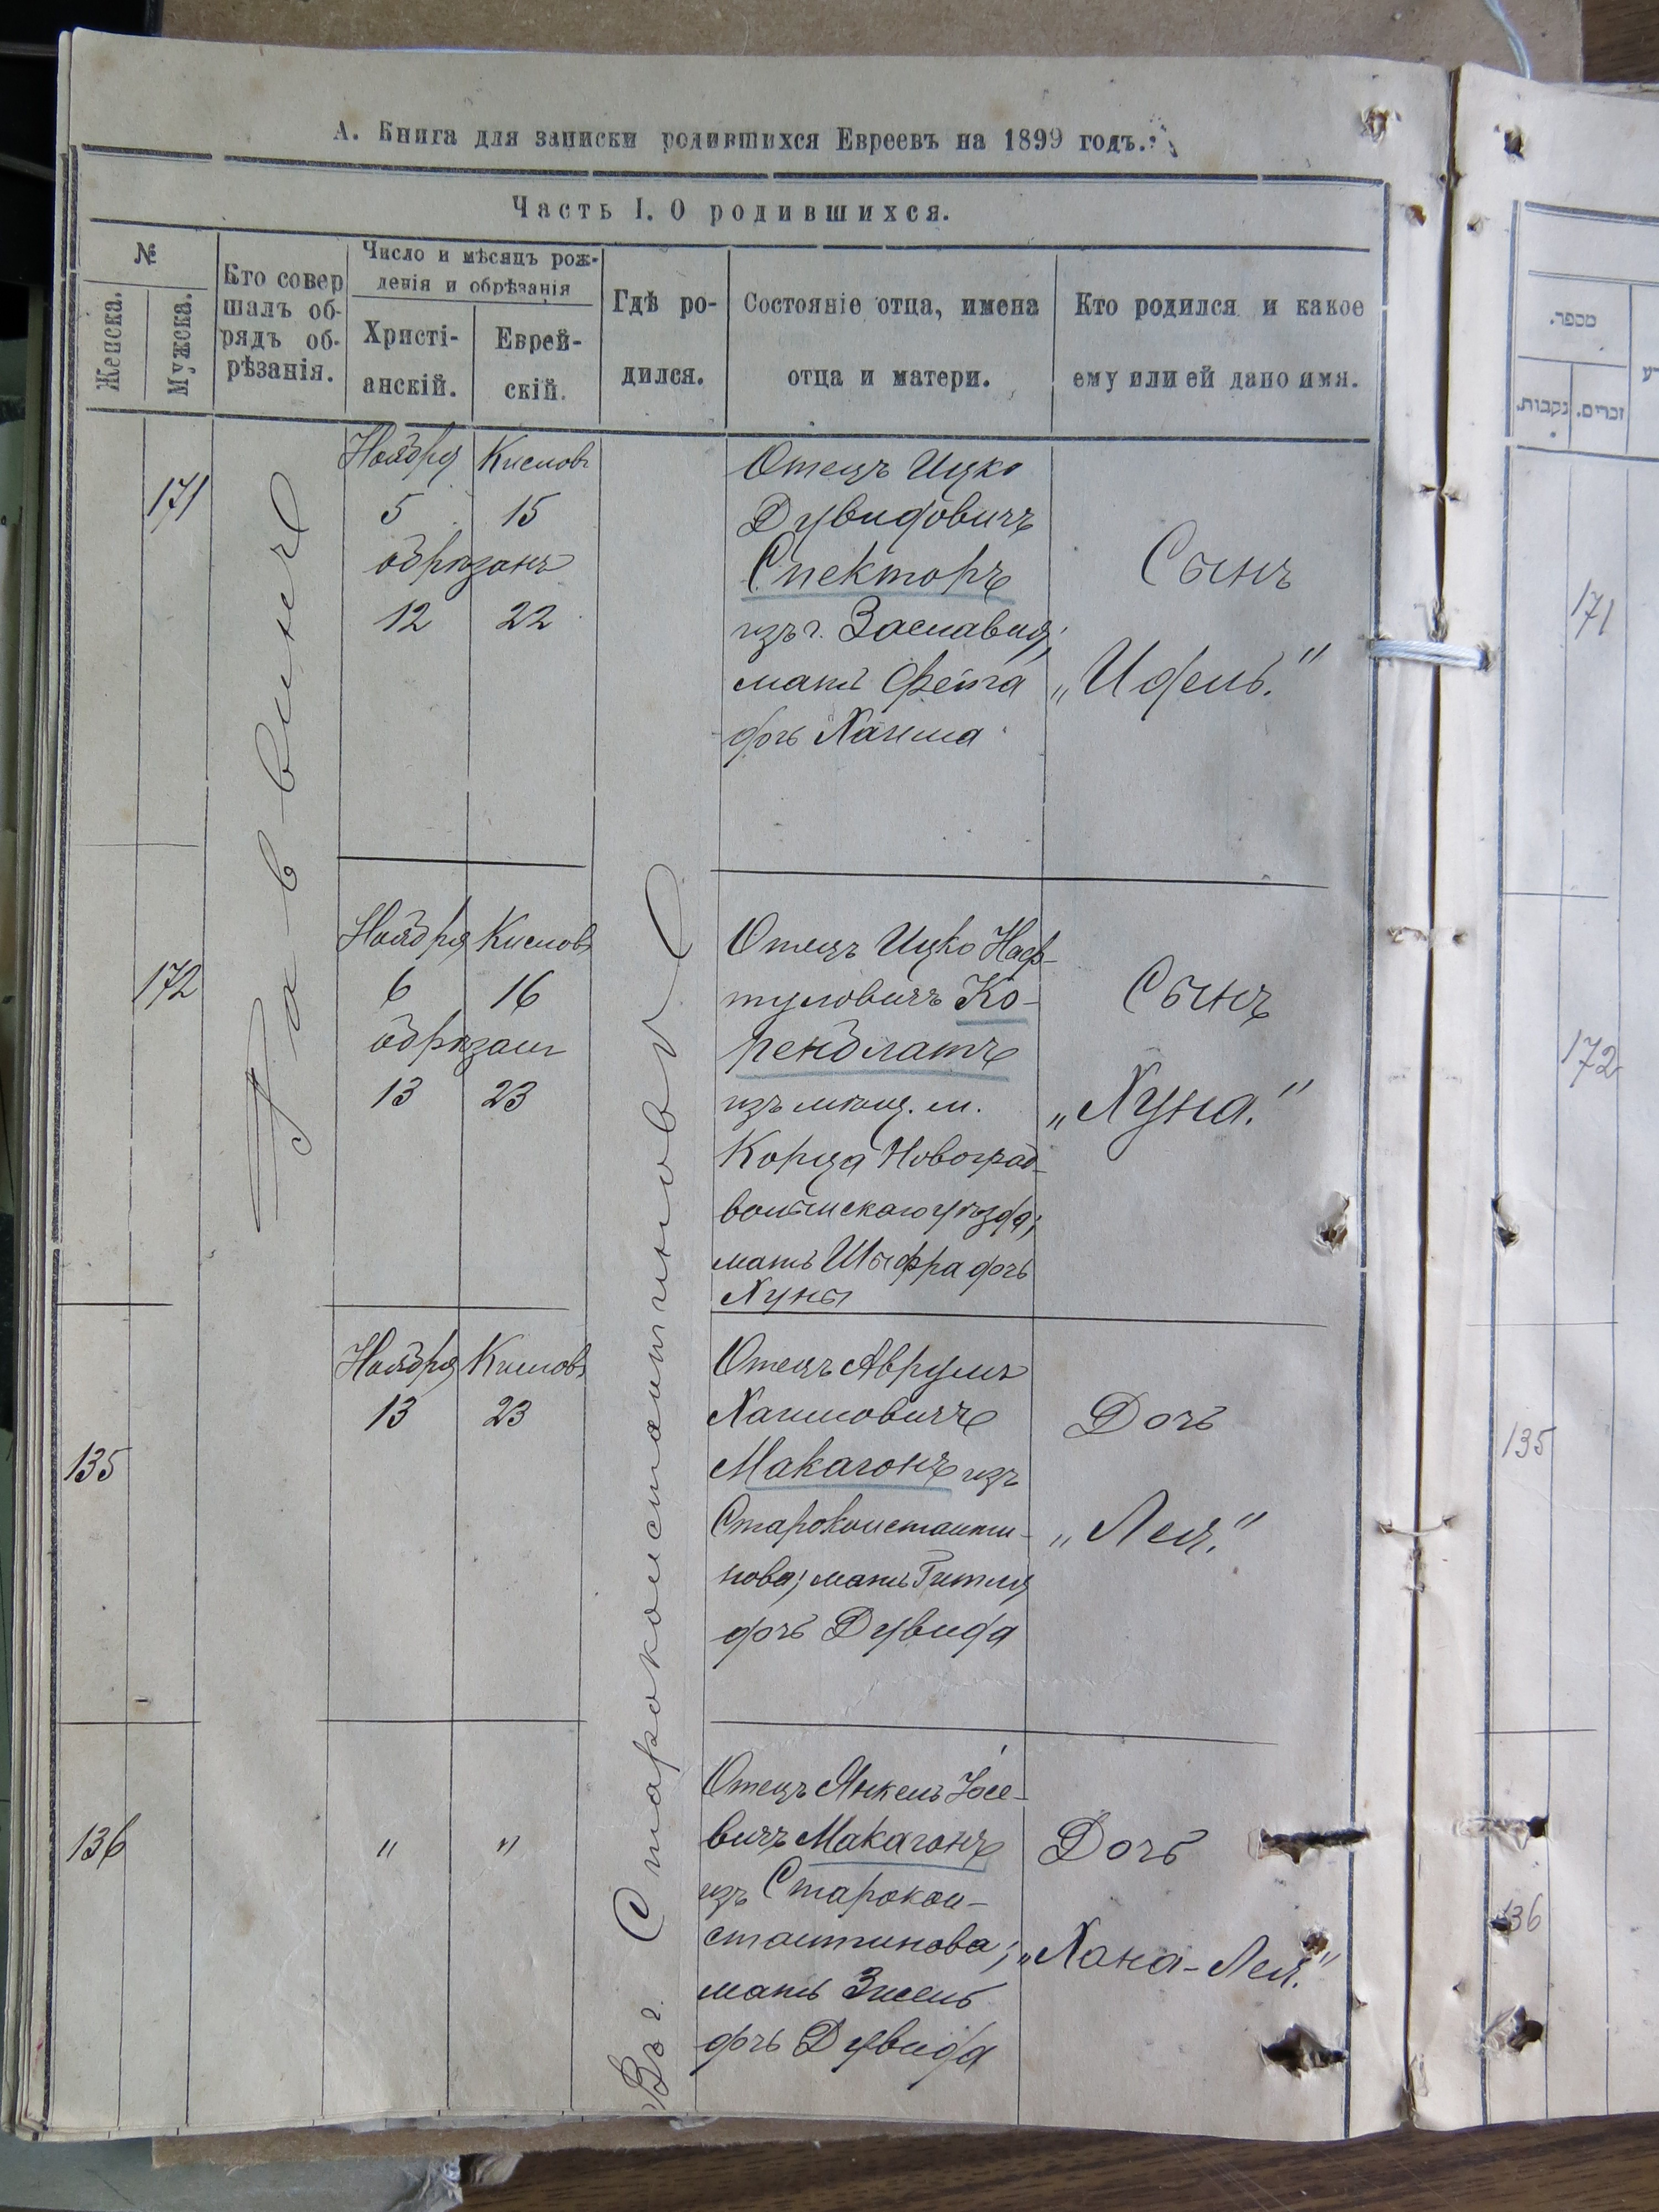 А. Книга для записки родившихся Евреевъ на 1899 годъ.
Часть I. О родившихся.
№
Женска.
Мужска.
Кто совер
шалъ об-
рядъ об-
рѣзанія.
Число и мѣсяцъ рож-
денія и обрѣзанія
Христі-
анскій.
Еврей-
скій.
Гдѣ ро-
дился.
Состояніе отца, имена
отца и матери.
Кто родился и какое
ему или ей дано имя.
Раввинъ
Въ г. Староконстантиновѣ
171
Ноября Кислевъ
5 15
обрѣзанъ
12 22
Отецъ Ицко
Дувидовичъ
Спекторъ
изъ г. Заславля;
мать Фейга
дочь Хаима
Сынъ
„Идель."
172
Ноября Кислевъ
6 16
обрѣзанъ
13 23
Отецъ Ицко Наф-
туловичъ Ко-
ренблатъ
изъ мѣщ. м.
Корца Новоград-
волынскаго уѣзда;
мать Шыфра дочь
Хуны
Сынъ
„Хуна."
135
Ноября Кислевъ
13 23
Отецъ Аврумъ
Хаимовичъ
Макагонъ изъ
Староконстанти-
нова; мать Гитля
дочь Дувида
Дочь
„Лея."
136
" "
Отецъ Янкель Іосе-
вичъ Макагонъ
изъ Старокон-
стантинова;
мать Зисель
дочь Дувида
Дочь
„Хана-Лея."
מספר.
נקבות.
זכרים.
171
172
135
136